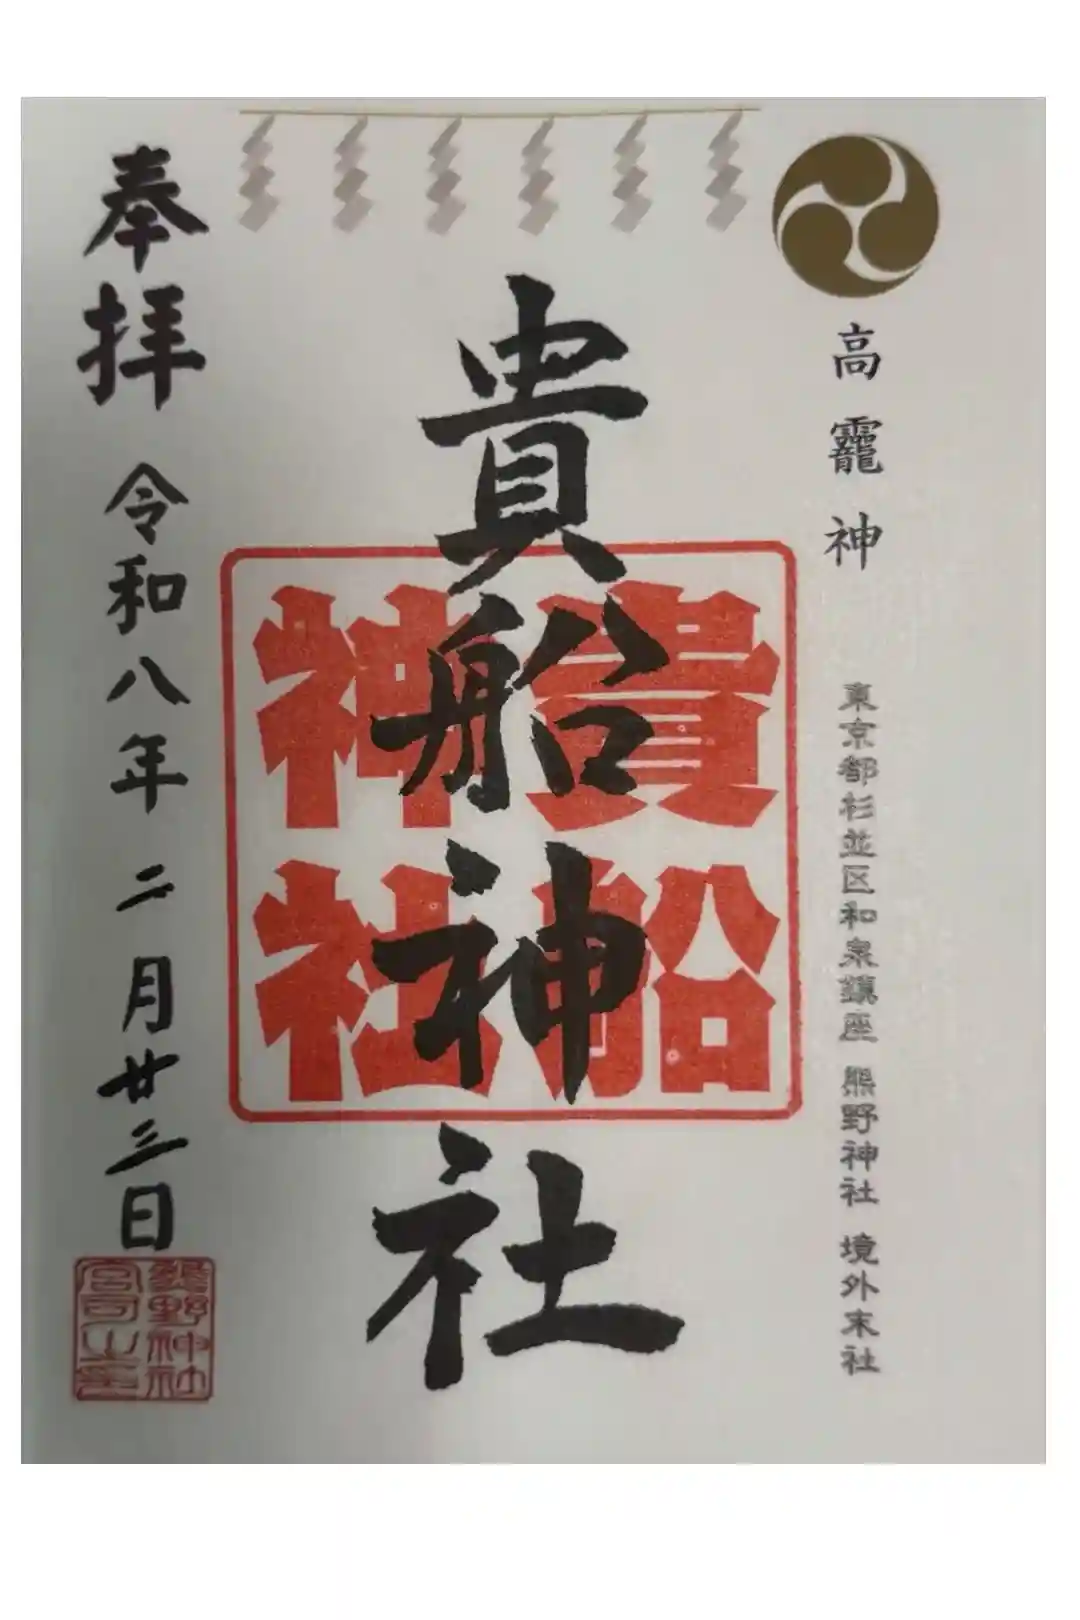 高龗神
東京都杉並区和泉鎮座 熊野神社 境外末社
貴船神社
貴船
神社
奉拝 令和八年二月廿三日
熊野神社
宮司之印